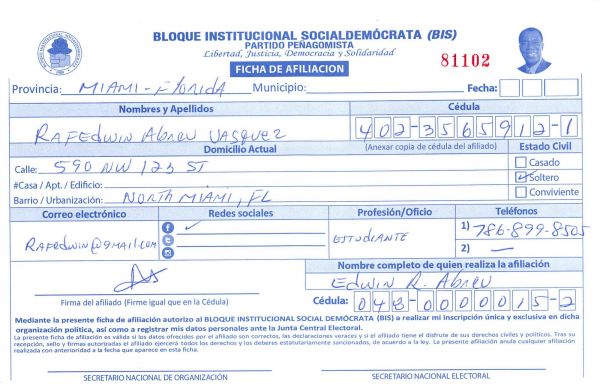 BLOQUE INSTITUCIONAL SOCIALDEMÓCRATA (BIS)
PARTIDO PEÑAGOMISTA
Libertad, Justicia, Democracia y Solidaridad
FICHA DE AFILIACION
81102
Provincia: MIAMI - Florida Municipio: Fecha:
Nombres y Apellidos Cédula
RAFEdwin Abreu VASquez 402-3565912-1
Domicilio Actual (Anexar copia de cédula del afiliado) Estado Civil
Calle: 590 NW 123 ST Casado
#Casa / Apt. / Edificio: Soltero
Barrio / Urbanización: NORTH MIAMI, FL Conviviente
Correo electrónico Redes sociales Profesión/Oficio Teléfonos
RAFedwin@gmail.com ESTUDIANTE 1) 786-899-8505
2) —
Nombre completo de quien realiza la afiliación
Edwin R. Abreu
Firma del afiliado (Firme igual que en la Cédula) Cédula: 048-0000015-2
Mediante la presente ficha de afiliación autorizo al BLOQUE INSTITUCIONAL SOCIAL DEMÓCRATA (BIS) a realizar mi inscripción única y exclusiva en dicha
organización política, así como a registrar mis datos personales ante la Junta Central Electoral.
La presente ficha de afiliación es válida si los datos ofrecidos por el afiliado son correctos, las declaraciones veraces y si el afiliado tiene el disfrute de sus derechos civiles y políticos. Tras su
recepción, sello y firmas autorizadas el afiliado ejercerá todos los derechos y los deberes estatutariamente sancionados, de acuerdo a la ley. La presente afiliación anula cualquier afiliación
realizada con anterioridad a la fecha que aparece en esta ficha.
SECRETARIO NACIONAL DE ORGANIZACIÓN SECRETARIO NACIONAL ELECTORAL